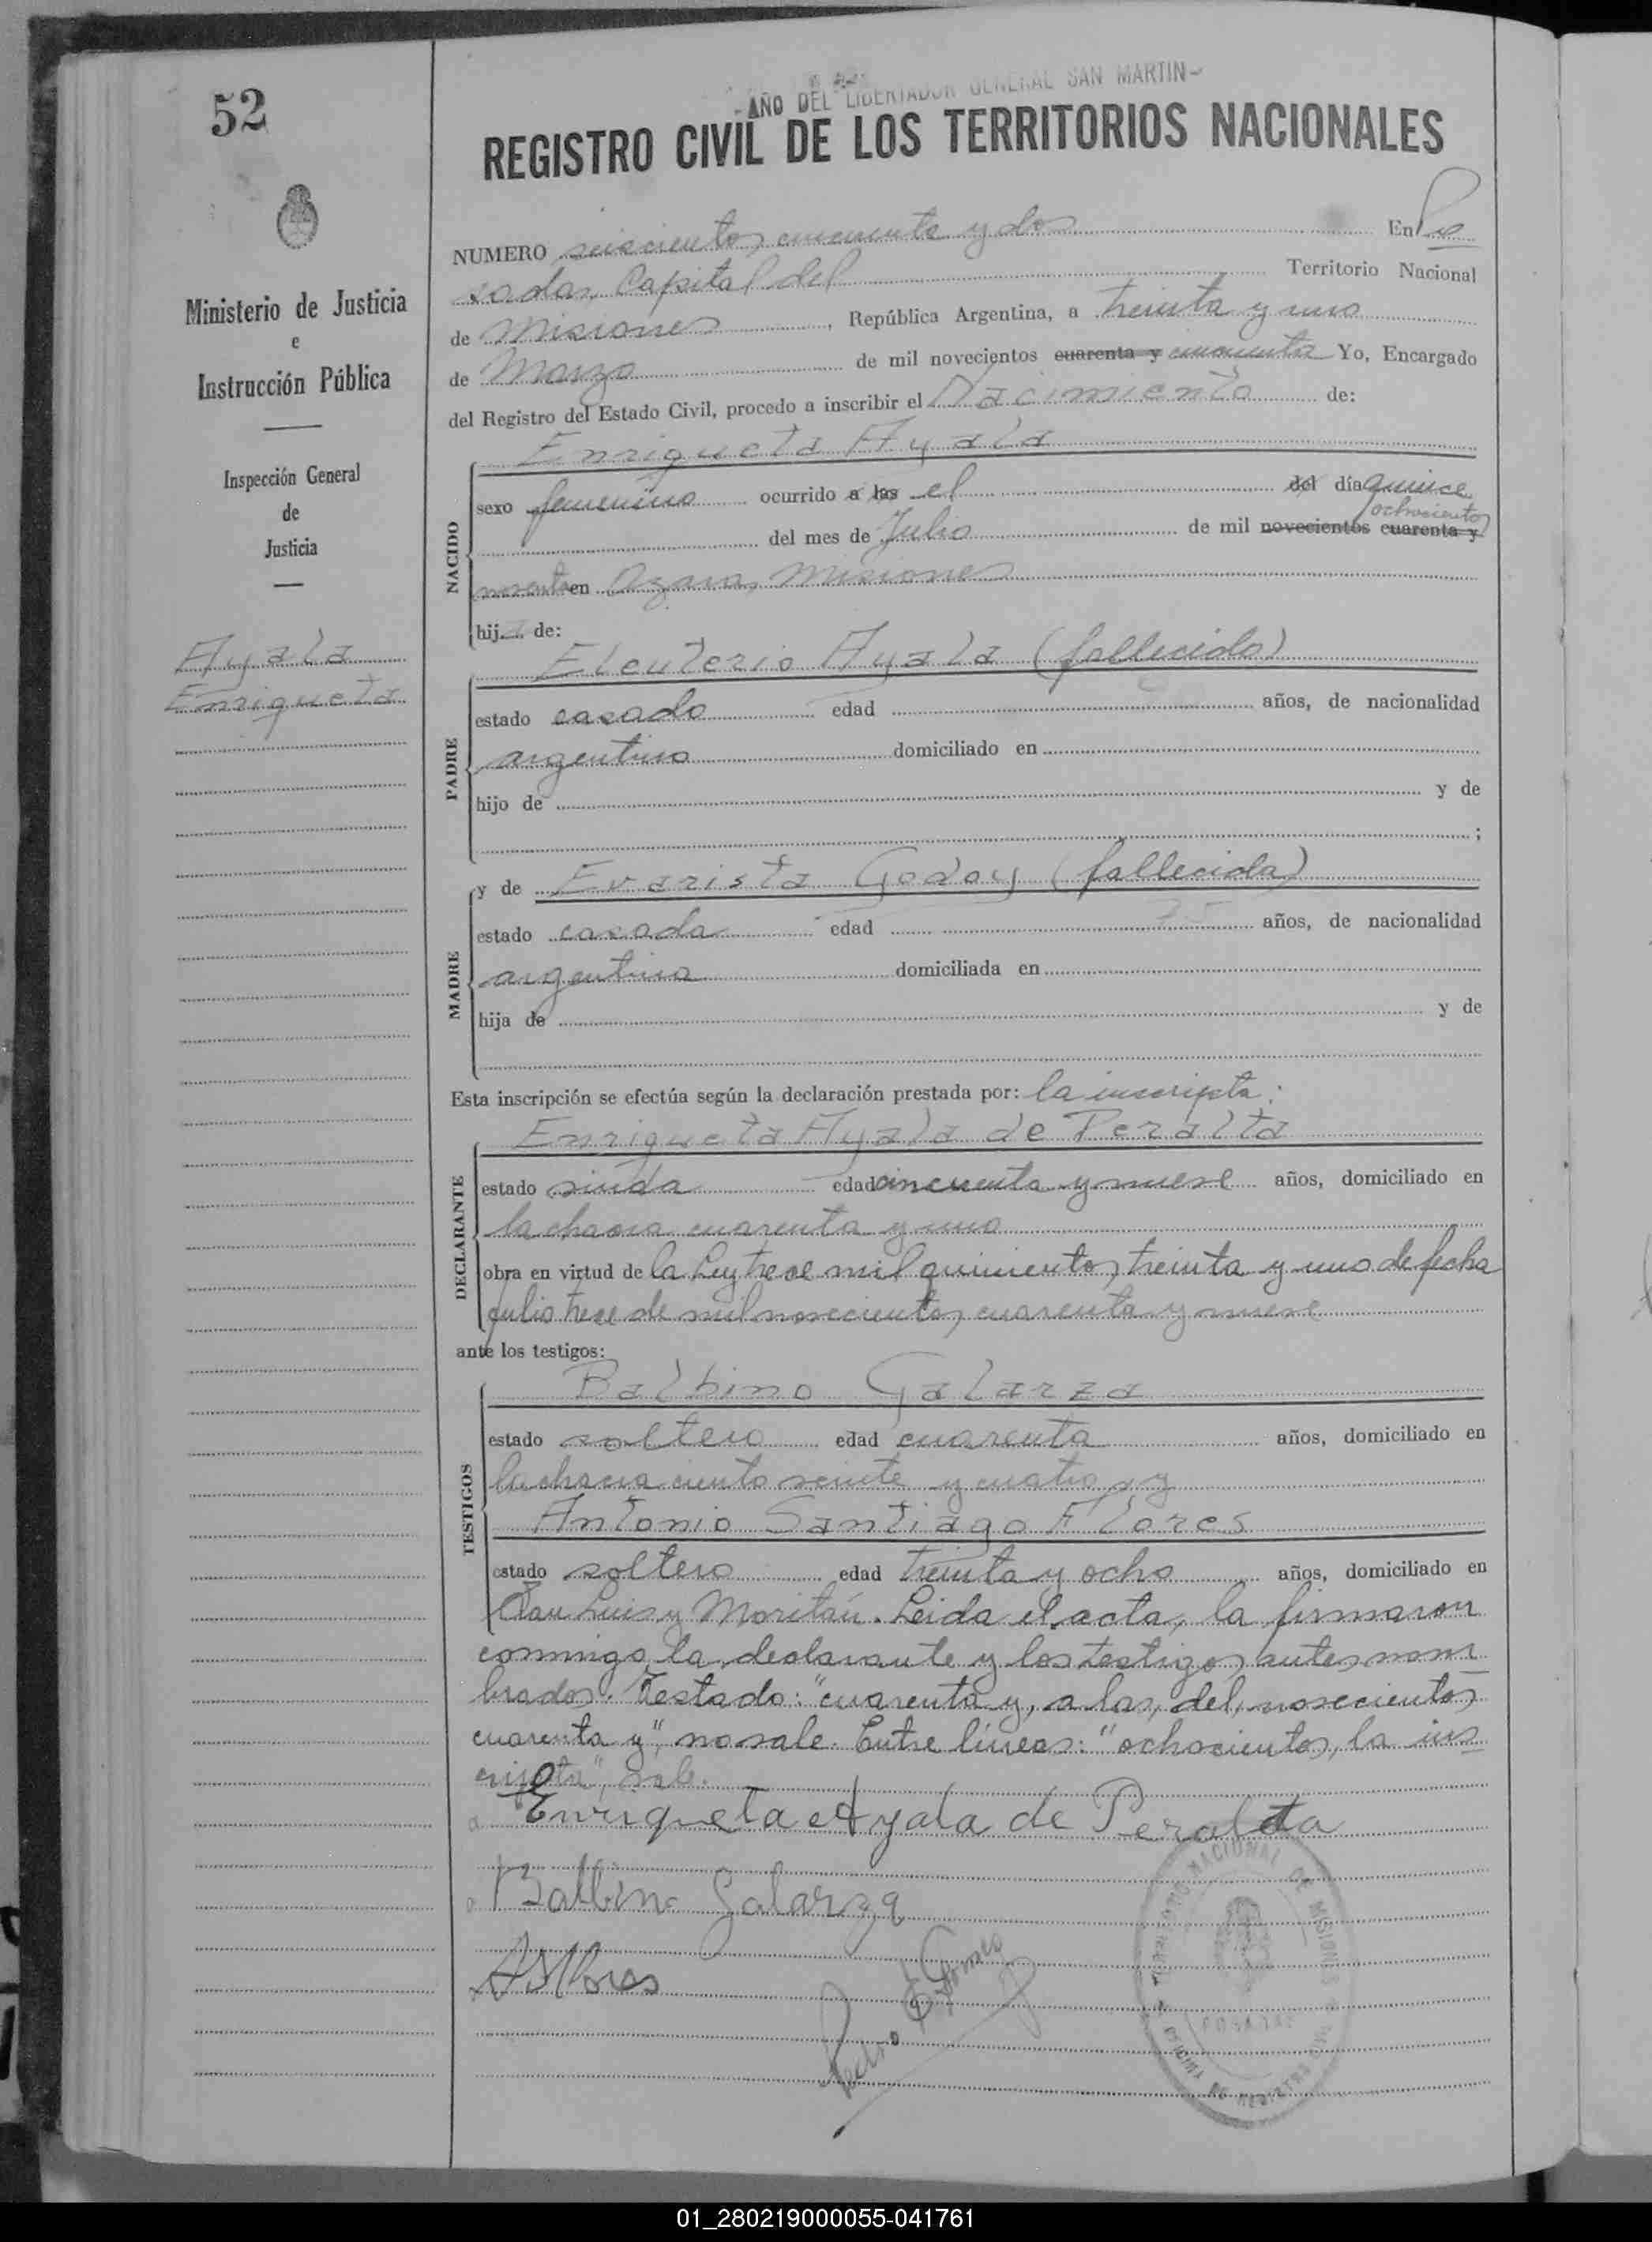 52
- AÑO DEL LIBERTADOR GENERAL SAN MARTIN -
REGISTRO CIVIL DE LOS TERRITORIOS NACIONALES
Ministerio de Justicia
e
Instrucción Pública
Inspección General
de
Justicia
Ayala
Enriqueta
NUMERO seiscientos cincuenta y dos En Po
sadas, Capital del Territorio Nacional
de Misiones, República Argentina, a treinta y uno
de Marzo de mil novecientos cuarenta y cincuenta Yo, Encargado
del Registro del Estado Civil, procedo a inscribir el Nacimiento de:
Enriqueta Ayala
NACIDO
sexo femenino ocurrido a las el del día quince
ochocientos
del mes de Julio de mil novecientos cuarenta y
noventa en Azara, Misiones
hija de:
Eleuterio Ayala (fallecido)
PADRE
estado casado edad años, de nacionalidad
argentino domiciliado en
hijo de y de
;
y de Evarista Godoy (fallecida)
MADRE
estado casada edad años, de nacionalidad
argentina domiciliada en
hija de y de
Esta inscripción se efectúa según la declaración prestada por: la inscripta:
Enriqueta Ayala de Peralta
DECLARANTE
estado viuda edad cincuenta y nueve años, domiciliado en
la chacra cuarenta y uno
obra en virtud de la Ley trece mil quinientos treinta y uno de fecha
julio trece de mil novecientos cuarenta y nueve
ante los testigos:
Balbino Galarza
TESTIGOS
estado soltero edad cuarenta años, domiciliado en
la chacra ciento veinte y cuatro y
Antonio Santiago Flores
estado soltero edad treinta y ocho años, domiciliado en
San Luis y Moritán. Leida el acta, la firmaron
conmigo la declarante y los testigos antes nom
brados. Testado: "cuarenta y, a las, del, novecientos
cuarenta y", no vale. Entre líneas: "ochocientos, la ins
cripta", vale.
Enriqueta Ayala de Peralta
Balbino Galarza
AS Flores
Pedro E Gomez
TERRITORIO NACIONAL DE MISIONES
POSADAS
OFICINA DE REGISTRO CIVIL
01_280219000055-041761